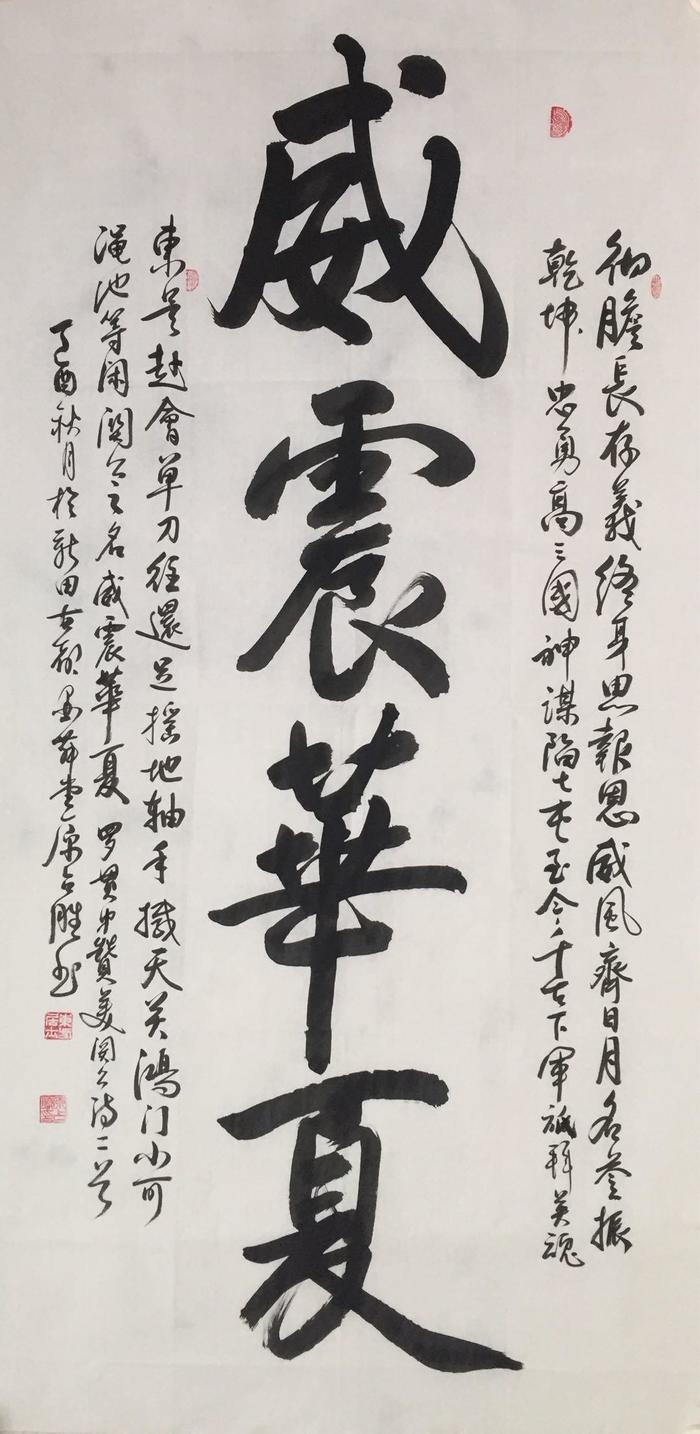 彻膽長存義終身思報恩威風齊日月名誉振
乾坤忠勇高三國神謀陷七屯至今千古下軍旅拜英魂
威震華夏
東吴赴會單刀往還足摇地轴手撼天关鴻门小可
渑池等闲関公之名威震華夏罗贯中赞美関公诗二首
丁酉秋月於新田古都墨堂占胜书